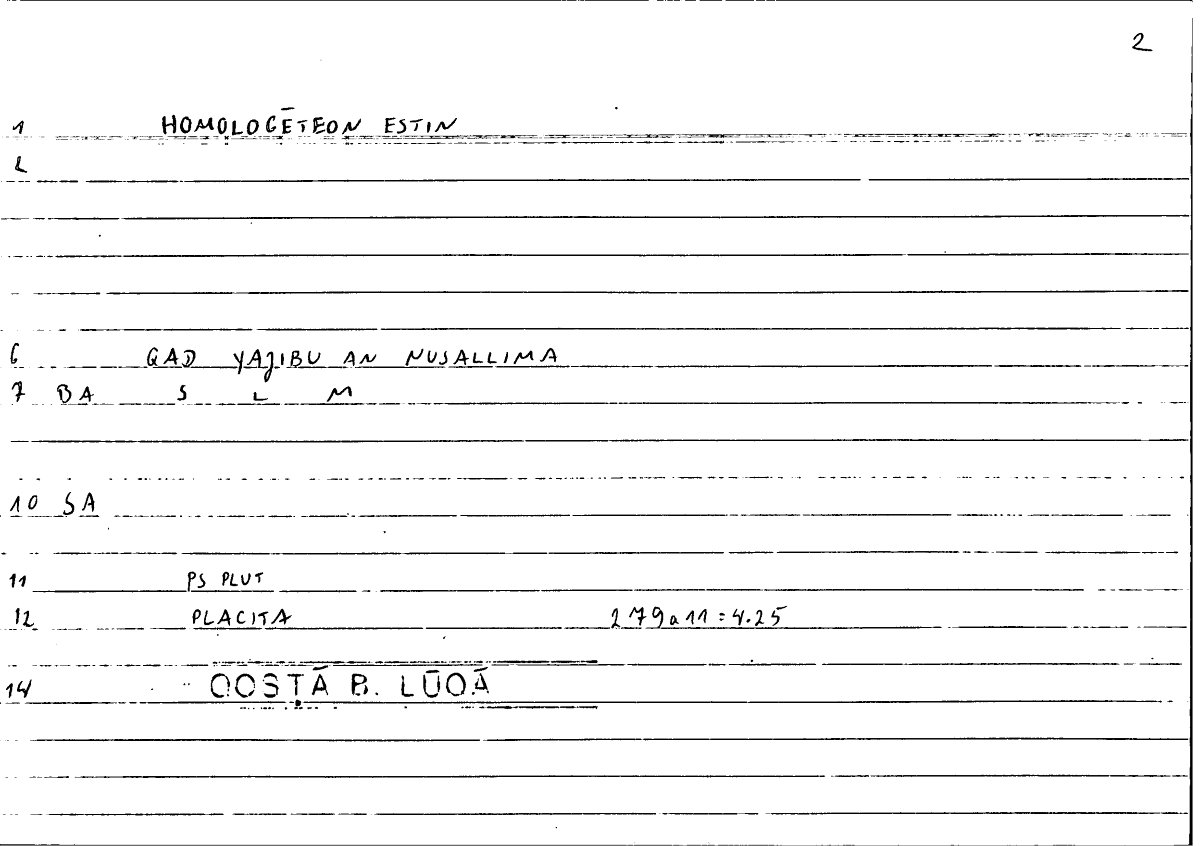 2
1 HOMOLOGĒTEON ESTIN
2
6 QAD YAJIBU AN NUSALLIMA
7 BA S L M
10 SA
11 PS PLUT
12 PLACITA 279a11=4.25
14 QOSṬĀ B. LŪQĀ